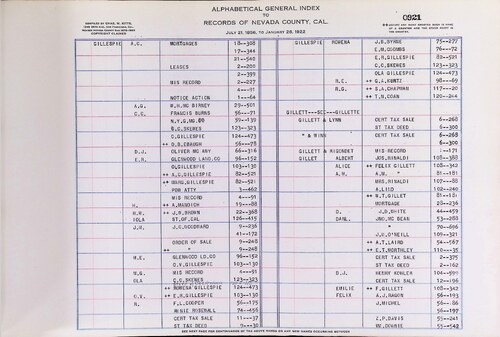 ALPHABETICAL GENERAL INDEX
TO
RECORDS OF NEVADA COUNTY, CAL.
JULY 21, 1856, TO JANUARY 28, 1922
0921
GILLESPIE A.C. MORTGAGES 18—308
17—344
21—540
LEASES 2—260
2—399
MIS RECORD 2—227
4—91
NOTICE ACTION 1—64
A.G. W.H.MC BIRNEY 29—501
D.C. FRANCIS BURNS 56—71
99—139
S.C.SKENES 123—323
C.GILLESPIE 124—473
++ D.S.EBAUGH 56—75
D.J. OLIVER MC ANY 66—316
E.R. GLENWOOD LAND.CO 96—152
OLGILLESPIE 103—130
++ A.G.GILLESPIE 82—521
++ GILLESPIE 82—521
POW ATTY 3—462
MIS RECORD 4—91
H. ++ A.MANDICH 19—88
H.H. ++ J.R.BROWN 22—368
IOLA ST.OF.CAL 126—415
J.H. J.E.GODDARD 9—236
41—172
ORDER OF SALE 9—248
++ " 9—248
M.E. GLENWOOD LD.CO 96—152
O.V.GILLESPIE 103—130
M.G. MIS RECORD 4—91
OLA C.C.SKENES 123—323
++ ROWENA GILLESPIE 124—473
O.V. ++ E.R.GILLESPIE 103—130
R. F.L.COOPER 56—175
ANNIE MCDONALL 74—456
CERT TAX SALE 11—37
ST TAX DEED 9—30
GILLESPIE ROWENA J.B.BYRNE 75—277
E.M.COOMBS 76—72
E.R.GILLESPIE 82—521
C.C.SKENES 123—323
OLA GILLESPIE 124—473
R.C. ++ G.A.KUNTZ 98—69
R.G. ++ S.A.CHAPMAN 117—20
++ T.N.COAN 120—244
GILLETT---SEE---GILLETTE
GILLETT & LYNN CERT TAX SALE 6—268
ST TAX DEED 6—300
" & WINN CERT TAX SALE 6—268
" 6—300
GILLETT & RIGONDET MIS RECORD 1—171
GILLET ALBERT JOS.RINALDI 108—388
ALICE ++ FELIX GILLETT 108—342
A.M. A.M. " 81—181
MRS.RINALDI 107—88
A.LIED 102—240
++ M.T.GILLET 81—181
MORTGAGE 28—236
D. J.D.WHITE 44—459
DANL. JNO.MC BEAN 53—288
" 70—696
J.H.O'NEILL 109—321
++ A.T.LAIRD 54—567
++ E.T.WORTHLEY 110—35
CERT TAX SALE 2—375
ST TAX DEED 2—162
D.J. HENRY KOHLER 104—599
CERT TAX SALE 12—196
EMILIE ++ F.GILLETT 108—342
FELIX A.J.RAGON 56—193
J.MICHEL 56—86
56—197
C.A.DAVIS 55—541
WM.DOWNIE 55—542